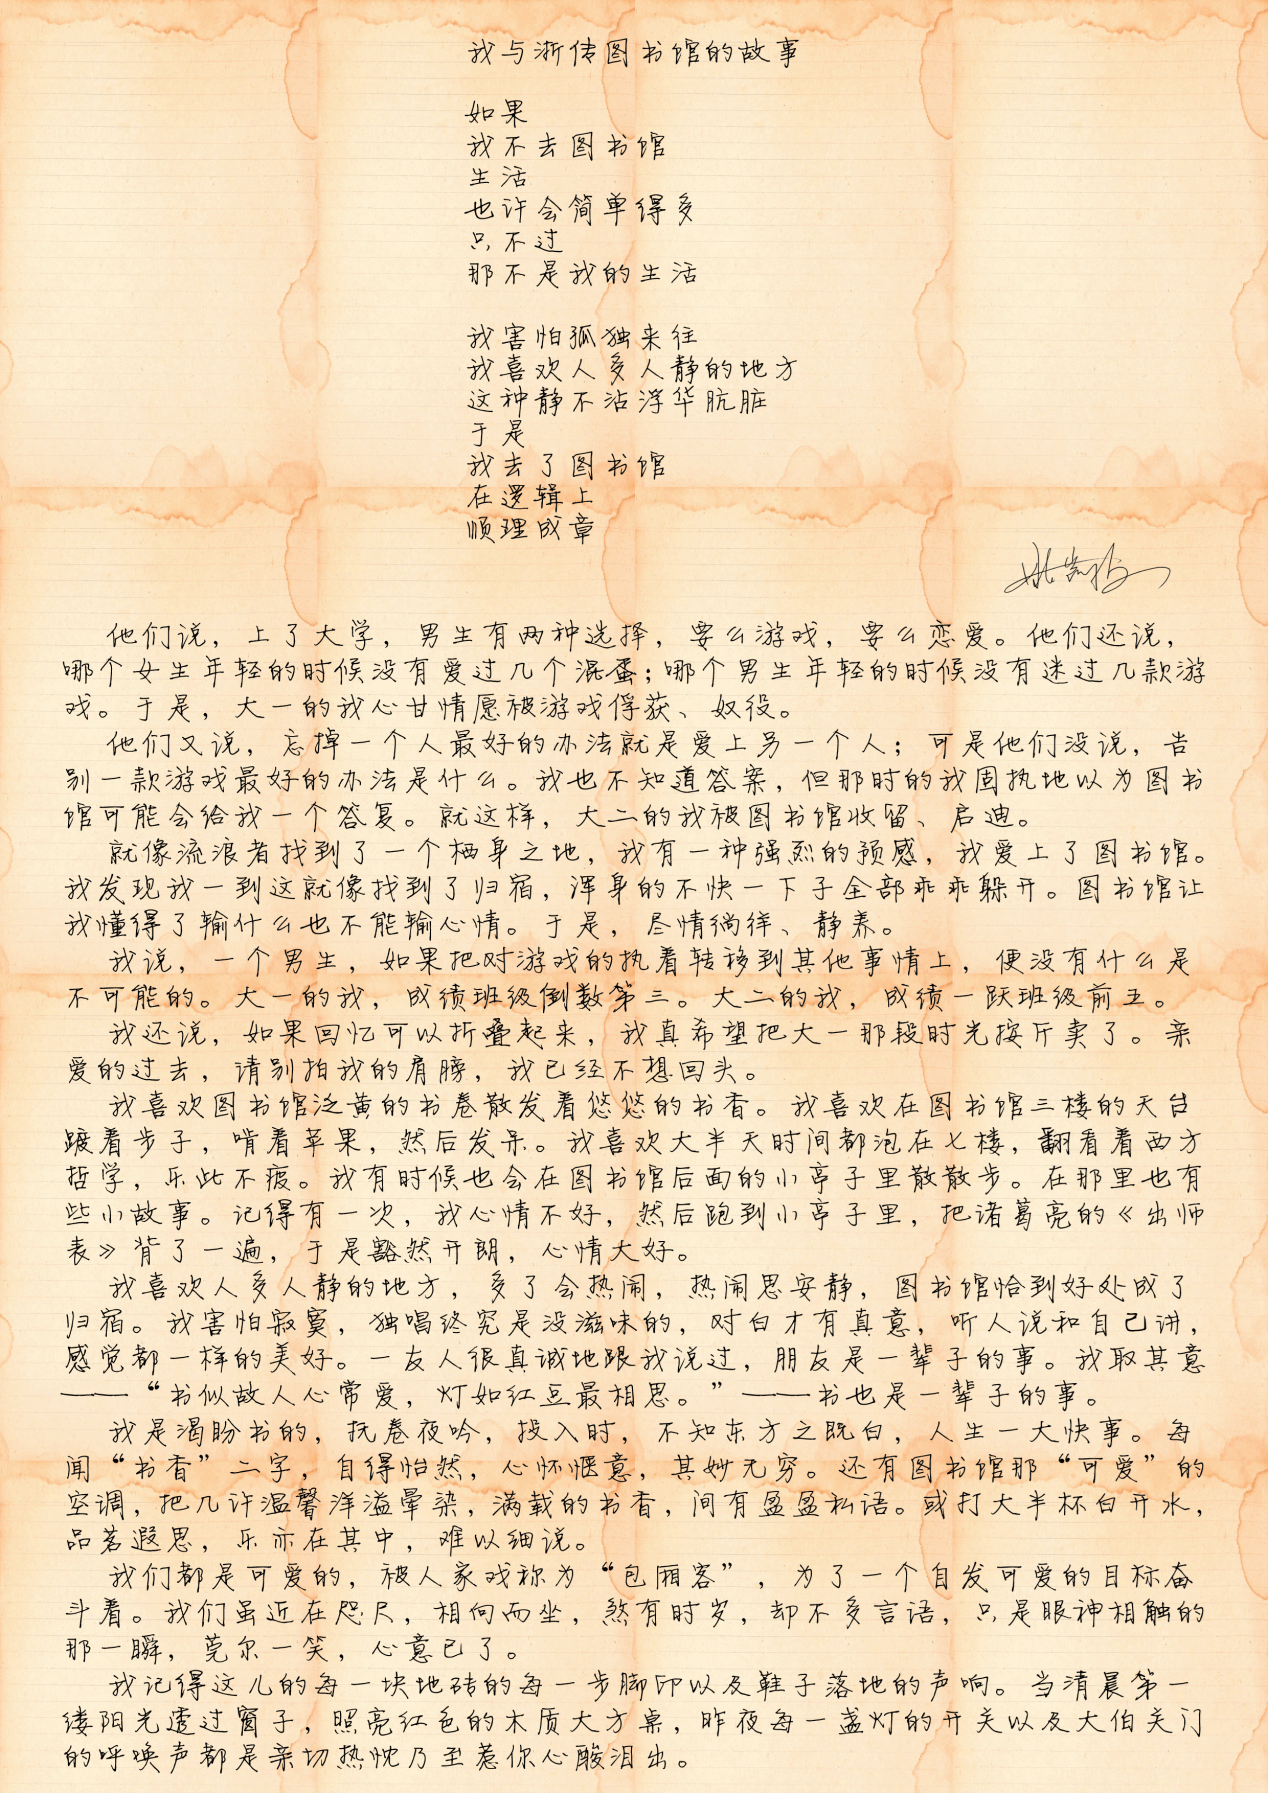 我与浙传图书馆的故事
如果
我不去图书馆
生活
也许会简单得多
只不过
那不是我的生活
我害怕孤独来往
我喜欢人多人静的地方
这种静不沾浮华肮脏
于是
我去了图书馆
在逻辑上
顺理成章
他们说，上了大学，男生有两种选择，要么游戏，要么恋爱。他们还说，
哪个女生年轻的时候没有爱过几个混蛋；哪个男生年轻的时候没有迷过几款游
戏。于是，大一的我心甘情愿被游戏俘获、奴役。
他们又说，忘掉一个人最好的办法就是爱上另一个人；可是他们没说，告
别一款游戏最好的办法是什么。我也不知道答案，但那时的我固执地以为图书
馆可能会给我一个答复。就这样，大二的我被图书馆收留、启迪。
就像流浪者找到了一个栖身之地，我有一种强烈的预感，我爱上了图书馆。
我发现我一到这就像找到了归宿，浑身的不快一下子全部乖乖躲开。图书馆让
我懂得了输什么也不能输心情。于是，尽情徜徉、静养。
我说，一个男生，如果把对游戏的执着转移到其他事情上，便没有什么是
不可能的。大一的我，成绩班级倒数第三。大二的我，成绩一跃班级前五。
我还说，如果回忆可以折叠起来，我真希望把大一那段时光按斤卖了。亲
爱的过去，请别拍我的肩膀，我已经不想回头。
我喜欢图书馆泛黄的书卷散发着悠悠的书香。我喜欢在图书馆三楼的天台
踱着步子，啃着苹果，然后发呆。我喜欢大半天时间都泡在七楼，翻看着西方
哲学，乐此不疲。我有时候也会在图书馆后面的小亭子里散散步。在那里也有
些小故事。记得有一次，我心情不好，然后跑到小亭子里，把诸葛亮的《出师
表》背了一遍，于是豁然开朗，心情大好。
我喜欢人多人静的地方，多了会热闹，热闹思安静，图书馆恰到好处成了
归宿。我害怕寂寞，独唱终究是没滋味的，对白才有真意，听人说和自己讲，
感觉都一样的美好。一友人很真诚地跟我说过，朋友是一辈子的事。我取其意
——“书似故人心常爱，灯如红豆最相思。”——书也是一辈子的事。
我是渴盼书的，抚卷夜吟，投入时，不知东方之既白，人生一大快事。每
闻“书香”二字，自得怡然，心怀惬意，其妙无穷。还有图书馆那“可爱”的
空调，把几许温馨洋溢晕染，满载的书香，间有盈盈私语。或打大半杯白开水，
品茗遐思，乐亦在其中，难以细说。
我们都是可爱的，被人家戏称为“包厢客”，为了一个自发可爱的目标奋
斗着。我们虽近在咫尺，相向而坐，煞有时岁，却不多言语，只是眼神相触的
那一瞬，莞尔一笑，心意已了。
我记得这儿的每一块地砖的每一步脚印以及鞋子落地的声响。当清晨第一
缕阳光透过窗子，照亮红色的木质大方桌，昨夜每一盏灯的开关以及大伯关门
的呼唤声都是亲切热忱乃至惹你心酸泪出。